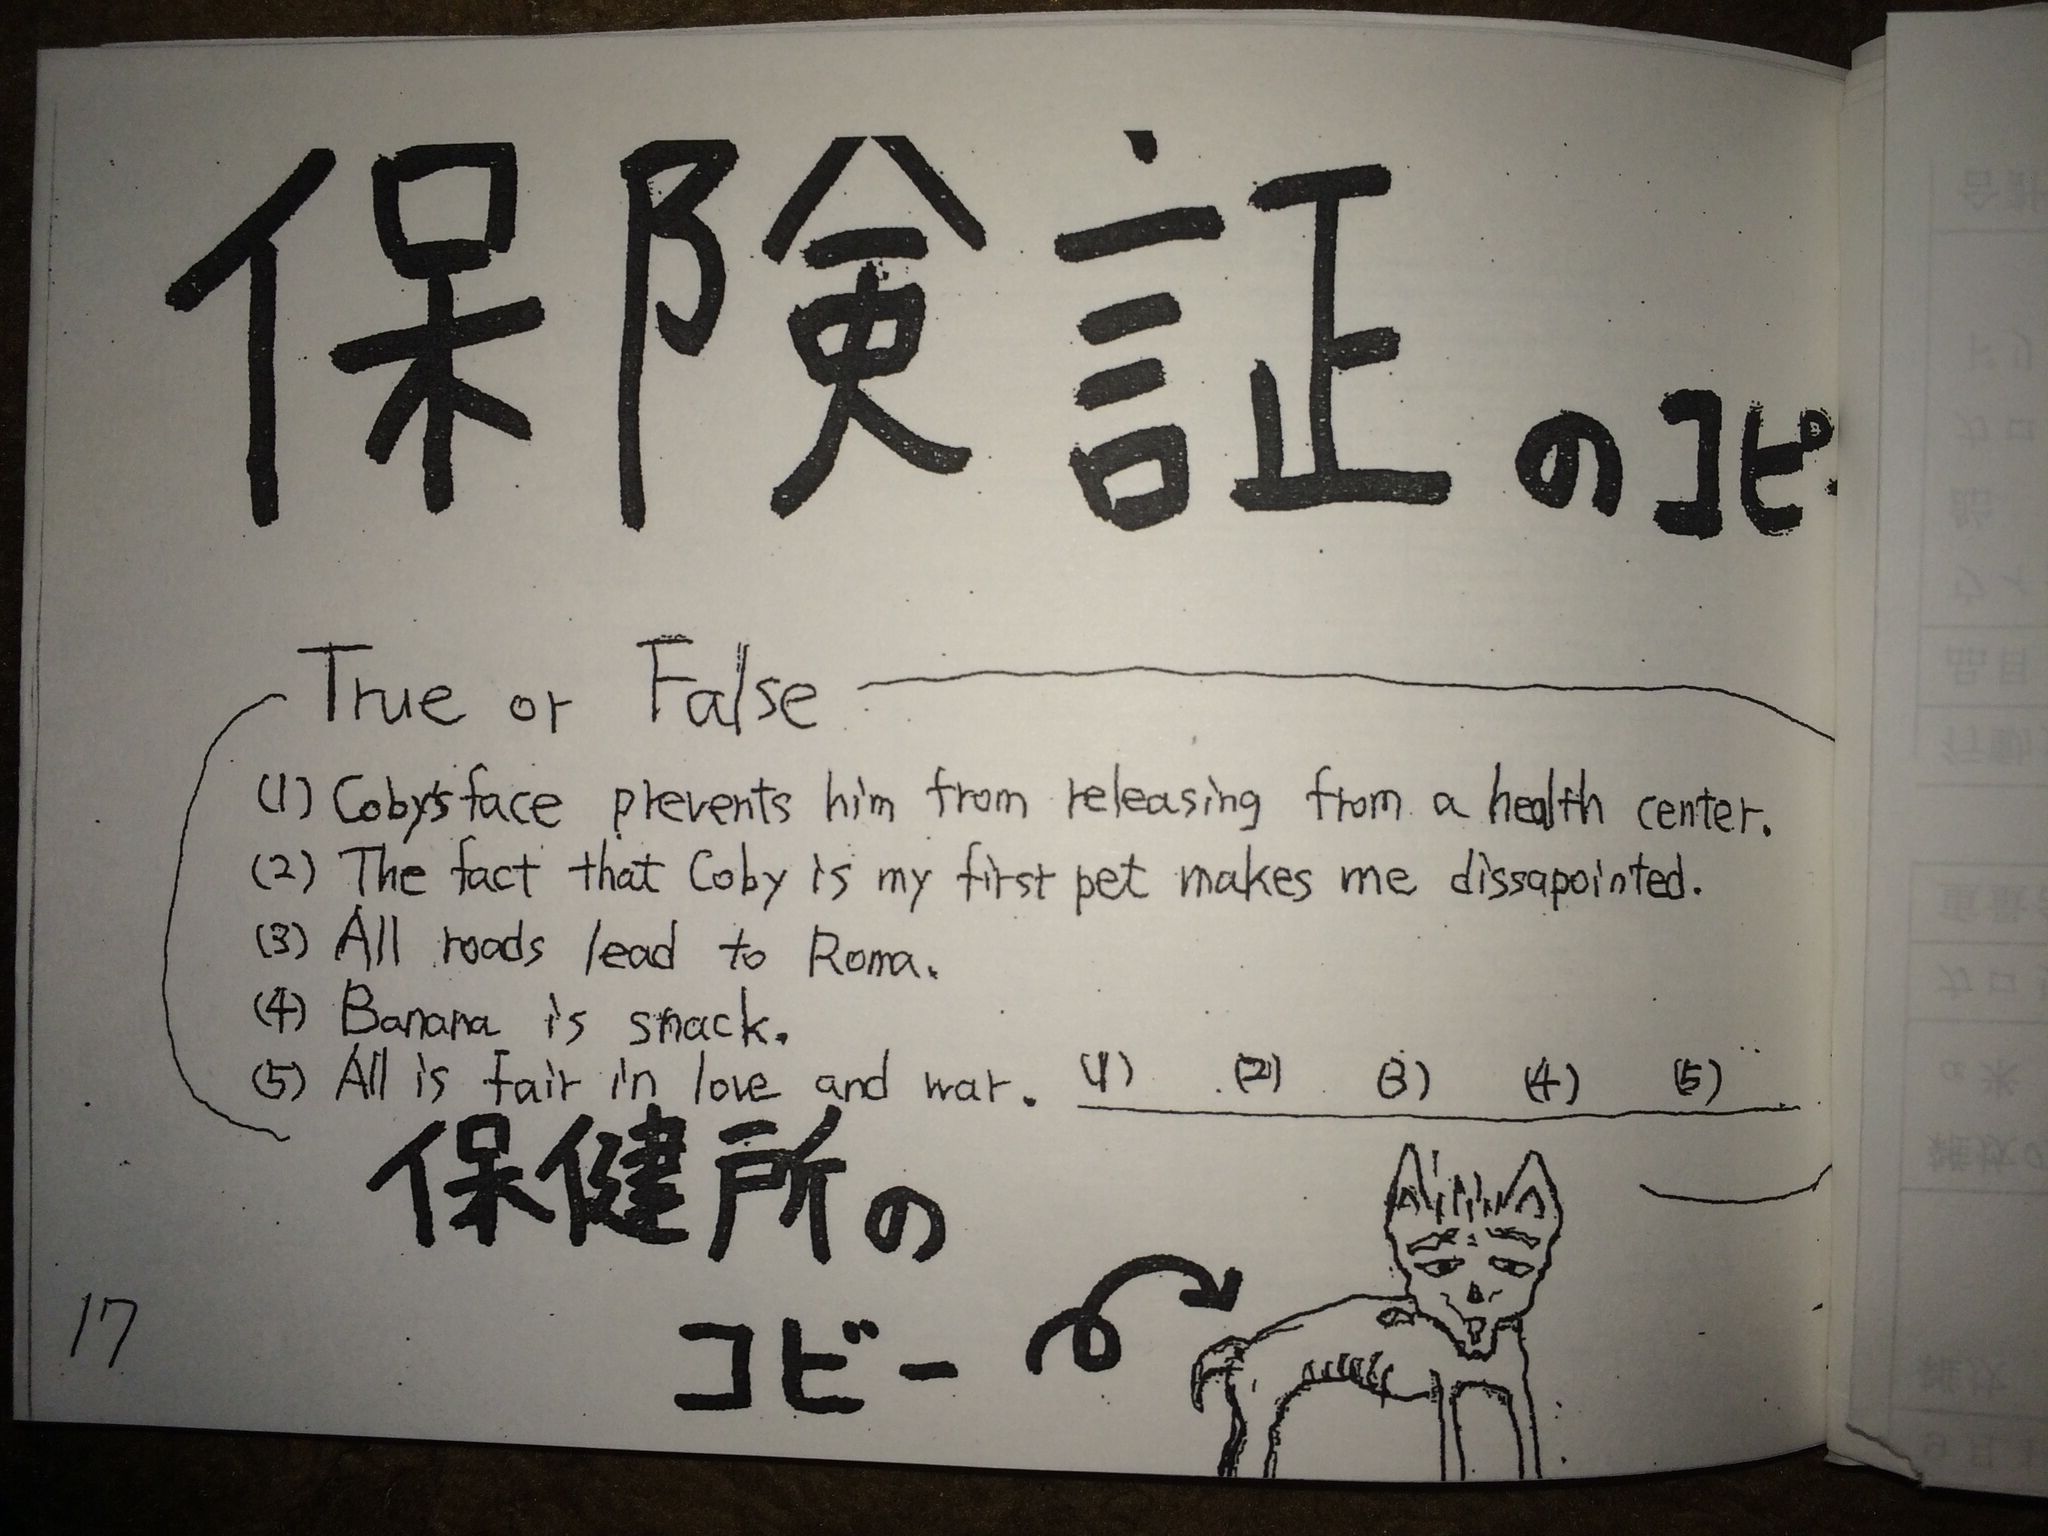 保険証のコピー
True or False
(1) Coby's face prevents him from releasing from a health center.
(2) The fact that Coby is my first pet makes me dissapointed.
(3) All roads lead to Roma.
(4) Banana is snack.
(5) All is fair in love and war. (1) (2) (3) (4) (5)
保健所の
コビー
17